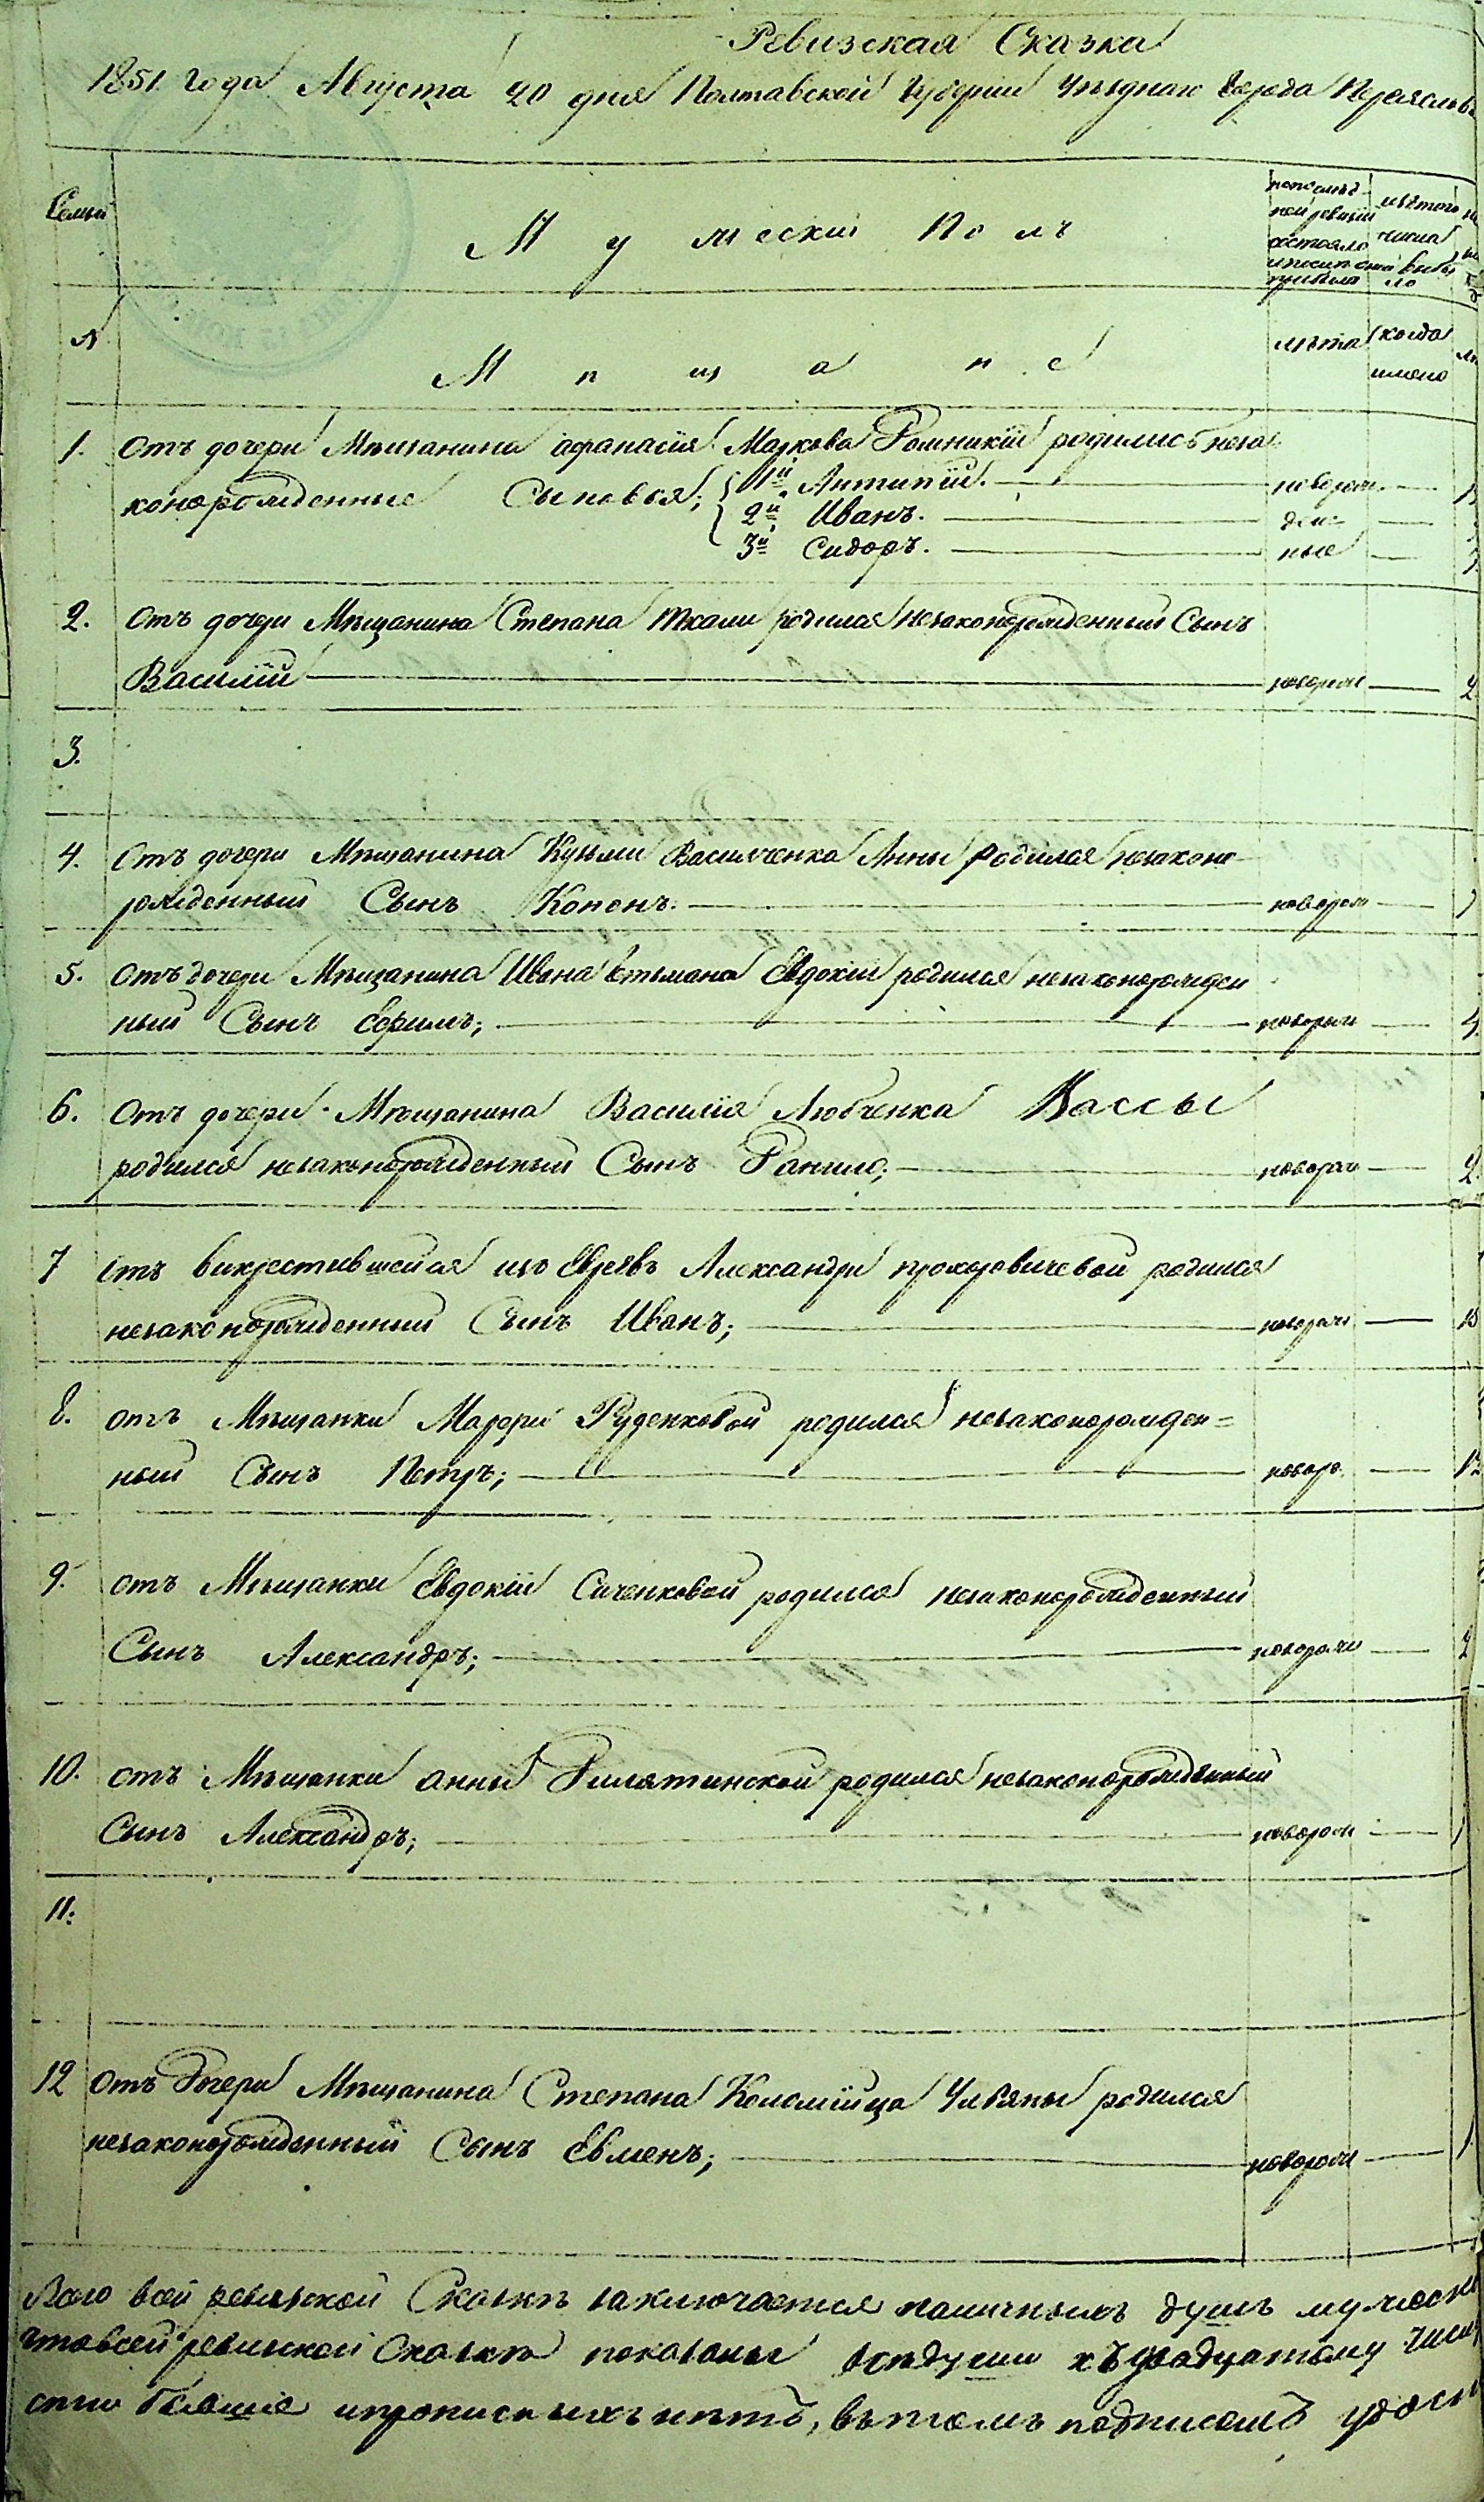 Ревизская Сказка
1851 года Августа 20 дня Полтавской Губернии Уѣзднаго Города Переяслов
Семьи
Мужеский Полъ
по послѣд
ней ревизіи
состояло
и послѣ оной
прибыло
изъ того
числа
выбы
ло
№
Мѣщане
лѣта
когда
имено
1. Отъ дочери Мѣщанина Афанасія Маркова родились неза
конорожденные Сыновья; 1й Антипій. новорож
2й Иванъ. ден
3й Сидоръ. ные
2. Отъ дочери Мѣщанина Степана родился незаконорожденный Сынъ
Василій новорож 2
3.
4. Отъ дочери Мѣщанина Кузьми Василченка Анны родился незаконо
рожденный Сынъ Кононъ. новорож
5. Отъ дочери Мѣщанина Ивана Евдокіи родился незаконорожден
ный Сынъ Ефимъ; новорож
6. Отъ дочери Мѣщанина Василія Любченка Вассы
родился незаконорожденный Сынъ Данило; новорож 2
7 Отъ викрестившейся изъ Евреевъ Александри Прохоровичевой родился
незаконорожденный Сынъ Иванъ; новорож
8. отъ Мѣщанки Марфи Руденковой родился незаконорожден=
ный Сынъ Петръ; новоро
9. отъ Мѣщанки Евдокіи Саченковой родился незаконорожденный
Сынъ Александръ; новорож
10. отъ Мѣщанки Анны родился незаконорожденный
Сынъ Александръ; новорож
11.
12 Отъ Дочери Мѣщанина Степана Коломійца Ульяны родился
незаконорожденный Сынъ Евменъ; новорож 1
Всего всей ревизской Сказкѣ заключается наличныхъ душъ мужеск
что всей ревизской Сказкѣ показаны всѣ души къ двадцатому числу
бывшіе и прописныхъ нѣтъ, въ томъ подписомъ удост